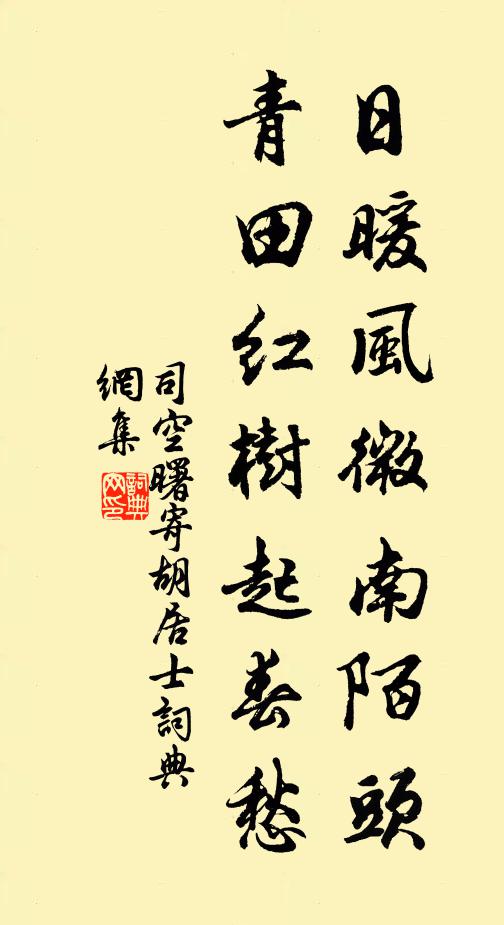 日暖風微南陌頭
青田紅樹起春愁
司空曙寄胡居士詞典
網集
詞典
网印